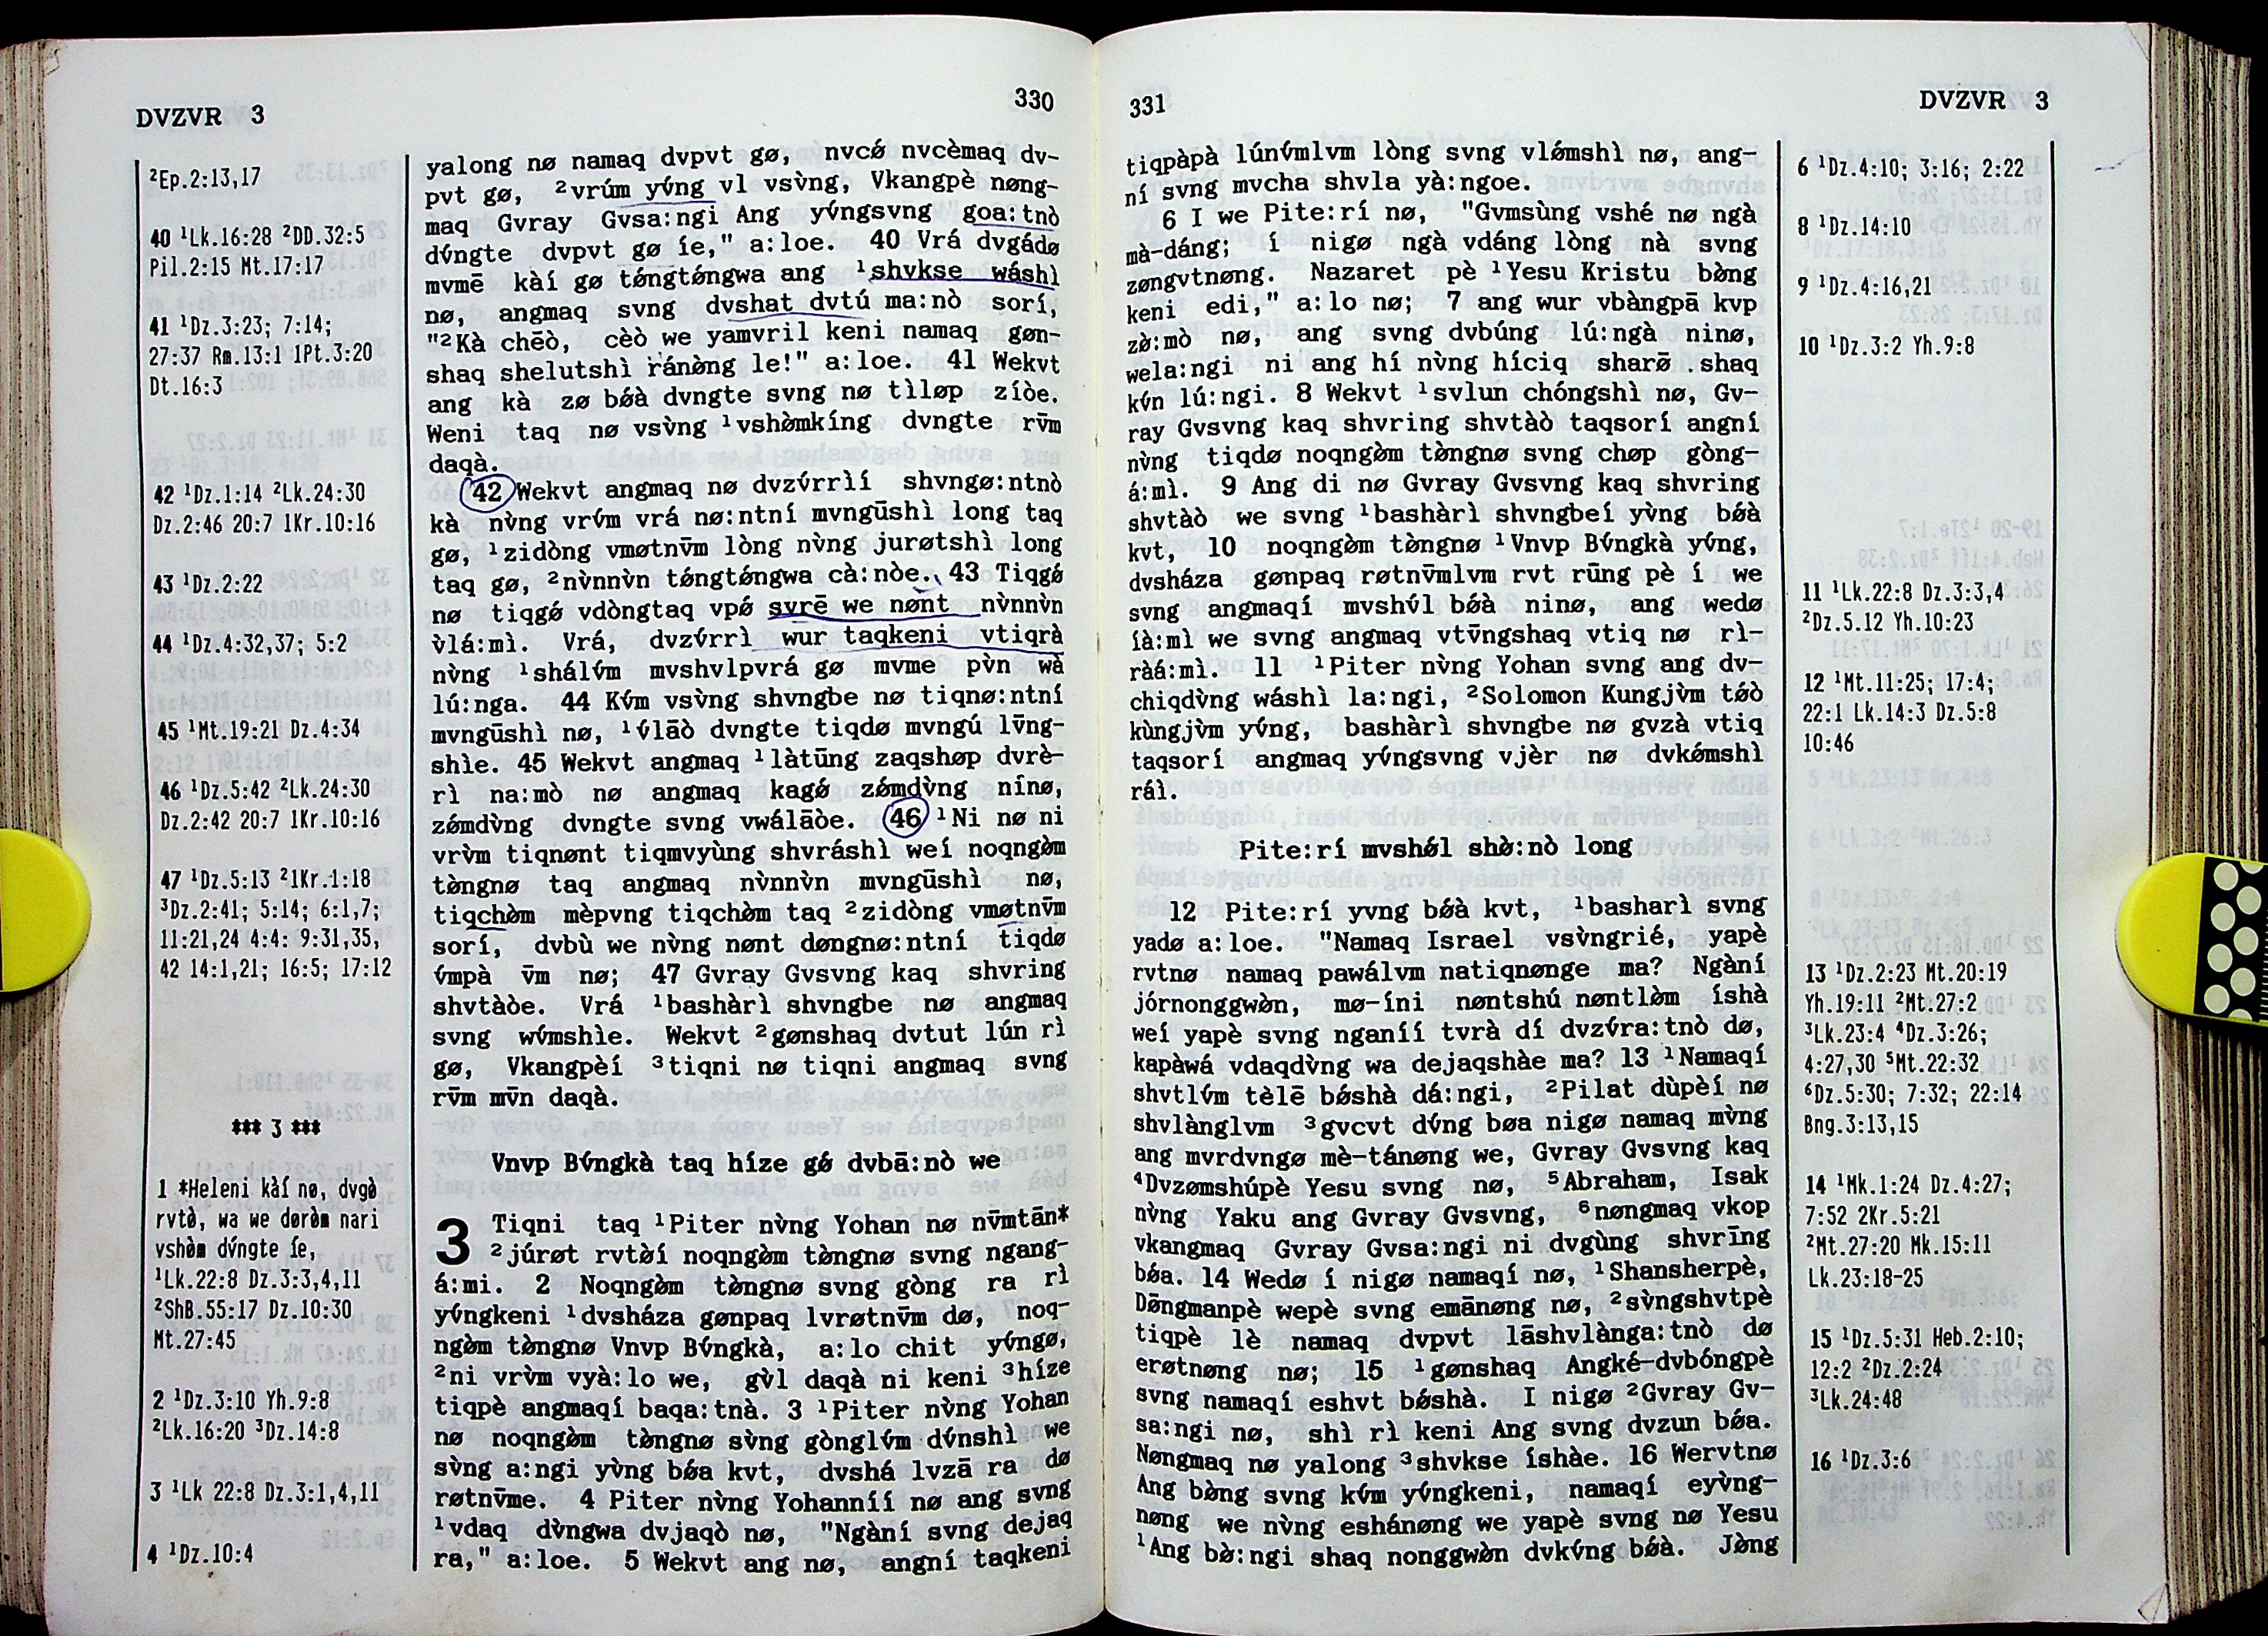 DVZVR 3
330
²Ep.2:13,17
40 ¹Lk.16:28 ²DD.32:5
Pil.2:15 Mt.17:17
41 ¹Dz.3:23; 7:14;
27:37 Rm.13:1 1Pt.3:20
Dt.16:3
42 ¹Dz.1:14 ²Lk.24:30
Dz.2:46 20:7 1Kr.10:16
43 ¹Dz.2:22
44 ¹Dz.4:32,37; 5:2
45 ¹Mt.19:21 Dz.4:34
46 ¹Dz.5:42 ²Lk.24:30
Dz.2:42 20:7 1Kr.10:16
47 ¹Dz.5:13 ²1Kr.1:18
³Dz.2:41; 5:14; 6:1,7;
11:21,24 4:4: 9:31,35,
42 14:1,21; 16:5; 17:12
*** 3 ***
1 *Heleni kàí nø, dvgø̀
rvtø̀, wa we dørø̀m nari
vshø̀m dv́ngte íe,
¹Lk.22:8 Dz.3:3,4,11
²ShB.55:17 Dz.10:30
Mt.27:45
2 ¹Dz.3:10 Yh.9:8
²Lk.16:20 ³Dz.14:8
3 ¹Lk 22:8 Dz.3:1,4,11
4 ¹Dz.10:4
yalong nø namaq dvpvt gø, nvcǿ nvcèmaq dv-
pvt gø, ²vrúm yv́ng vl vsv̀ng, Vkangpè nøng-
maq Gvray Gvsa:ngi Ang yv́ngsvng goa:tnò
dv́ngte dvpvt gø íe," a:loe. 40 Vrá dvgádø
mvmē kàí gø tǿngtǿngwa ang ¹shvkse wáshì
nø, angmaq svng dvshat dvtú ma:nò sorí,
"²Kà chēò, cèò we yamvril keni namaq gøn-
shaq shelutshì ránø̀ng le!" a:loe. 41 Wekvt
ang kà zø bǿà dvngte svng nø tìløp zíòe.
Weni taq nø vsv̀ng ¹vshø̀mkíng dvngte rv̄m
daqà.
42 Wekvt angmaq nø dvzv́rrìí shvngø:ntnò
kà nv̀ng vrv́m vrá nø:ntní mvngūshì long taq
gø, ¹zidòng vmøtnv̄m lòng nv̀ng jurøtshì long
taq gø, ²nv̀nnv̀n tǿngtǿngwa cà:nòe. 43 Tiqgǿ
nø tiqgǿ vdòngtaq vpǿ svrē we nønt nv̀nnv̀n
v̀lá:mì. Vrá, dvzv́rrì wur taqkeni vtiqrà
nv̀ng ¹shálv́m mvshvlpvrá gø mvme pv̀n wà
lú:nga. 44 Kv́m vsv̀ng shvngbe nø tiqnø:ntní
mvngūshì nø, ¹v́lāò dvngte tiqdø mvngú lv̄ng-
shìe. 45 Wekvt angmaq ¹làtūng zaqshøp dvrè-
rì na:mò nø angmaq kagǿ zǿmdv̀ng nínø,
zǿmdv̀ng dvngte svng vwálāòe. 46 ¹Ni nø ni
vrv̀m tiqnønt tiqmvyùng shvráshì weí noqngø̀m
tø̀ngnø taq angmaq nv̀nnv̀n mvngūshì nø,
tiqchø̀m mèpvng tiqchø̀m taq ²zidòng vmøtnv̄m
sorí, dvbù we nv̀ng nønt døngnø:ntní tiqdø
v́mpà v̄m nø; 47 Gvray Gvsvng kaq shvring
shvtàòe. Vrá ¹bashàrì shvngbe nø angmaq
svng wv́mshìe. Wekvt ²gønshaq dvtut lún rì
gø, Vkangpèí ³tiqni nø tiqni angmaq svng
rv̄m mv̄n daqà.
Vnvp Bv́ngkà taq híze gǿ dvbā:nò we
3 Tiqni taq ¹Piter nv̀ng Yohan nø nv̄mtān*
²júrøt rvtø̀í noqngø̀m tø̀ngnø svng ngang-
á:mi. 2 Noqngø̀m tø̀ngnø svng gòng ra rì
yv́ngkeni ¹dvsháza gønpaq lvrøtnv̄m dø, noq-
ngø̀m tø̀ngnø Vnvp Bv́ngkà, a:lo chit yv́ngø,
²ni vrv̀m vyà:lo we, gv̀l daqà ni keni ³híze
tiqpè angmaqí baqa:tnà. 3 ¹Piter nv̀ng Yohan
nø noqngø̀m tø̀ngnø sv̀ng gònglv́m dv́nshì we
sv̀ng a:ngi yv̀ng bǿa kvt, dvshá lvzā ra dø
røtnv̄me. 4 Piter nv̀ng Yohanníí nø ang svng
¹vdaq dv̀ngwa dvjaqò nø, "Ngàní svng dejaq
ra," a:loe. 5 Wekvt ang nø, angní taqkeni
331
DVZVR 3
tiqpàpà lúnv́mlvm lòng svng vlǿmshì nø, ang-
ní svng mvcha shvla yà:ngoe.
6 I we Pite:rí nø, "Gvmsùng vshé nø ngà
mà-dáng; í nigø ngà vdáng lòng nà svng
zøngvtnøng. Nazaret pè ¹Yesu Kristu bø̀ng
keni edi," a:lo nø; 7 ang wur vbàngpā kvp
zø̀:mò nø, ang svng dvbúng lú:ngà ninø,
wela:ngi ni ang hí nv̀ng híciq sharø̄ shaq
kv́n lú:ngi. 8 Wekvt ¹svlun chóngshì nø, Gv-
ray Gvsvng kaq shvring shvtàò taqsorí angní
nv̀ng tiqdø noqngø̀m tø̀ngnø svng chøp gòng-
á:mì. 9 Ang di nø Gvray Gvsvng kaq shvring
shvtàò we svng ¹bashàrì shvngbeí yv̀ng bǿà
kvt, 10 noqngø̀m tø̀ngnø ¹Vnvp Bv́ngkà yv́ng,
dvsháza gønpaq røtnv̄mlvm rvt rūng pè í we
svng angmaqí mvshv́l bǿà ninø, ang wedø
íà:mì we svng angmaq vtv̄ngshaq vtiq nø rì-
ráá:mì. 11 ¹Piter nv̀ng Yohan svng ang dv-
chiqdv̀ng wáshì la:ngi, ²Solomon Kungjv̀m tǿò
kùngjv̀m yv́ng, bashàrì shvngbe nø gvzà vtiq
taqsorí angmaq yv́ngsvng vjèr nø dvkǿmshì
ráì.
Pite:rí mvshǿl shø̀:nò long
12 Pite:rí yvng bǿà kvt, ¹basharì svng
yadø a:loe. "Namaq Israel vsv̀ngrié, yapè
rvtnø namaq pawálvm natiqnønge ma? Ngàní
jórnonggwø̀n, mø-íni nøntshú nøntlø̀m íshà
weí yapè svng nganíí tvrà dí dvzv́ra:tnò dø,
kapàwá vdaqdv̀ng wa dejaqshàe ma? 13 ¹Namaqí
shvtlv́m tèlē bǿshà dá:ngi, ²Pilat dùpèí nø
shvlànglvm ³gvcvt dv́ng bøa nigø namaq mv̀ng
ang mvrdvngø mè-tánøng we, Gvray Gvsvng kaq
⁴Dvzømshúpè Yesu svng nø, ⁵Abraham, Isak
nv̀ng Yaku ang Gvray Gvsvng, ⁶nøngmaq vkop
vkangmaq Gvray Gvsa:ngi ni dvgùng shvrīng
bǿa. 14 Wedø í nigø namaqí nø, ¹Shansherpè,
Dø̄ngmanpè wepè svng emānøng nø, ²sv̀ngshvtpè
tiqpè lè namaq dvpvt lāshvlànga:tnò dø
erøtnøng nø; 15 ¹gønshaq Angké-dvbóngpè
svng namaqí eshvt bǿshà. I nigø ²Gvray Gv-
sa:ngi nø, shì rì keni Ang svng dvzun bǿa.
Nøngmaq nø yalong ³shvkse íshàe. 16 Wervtnø
Ang bø̀ng svng kv́m yv́ngkeni, namaqí eyv̀ng-
nøng we nv̀ng eshánøng we yapè svng nø Yesu
¹Ang bø̀:ngi shaq nonggwø̀n dvkv́ng bǿà." Jø̀ng
6 ¹Dz.4:10; 3:16; 2:22
8 ¹Dz.14:10
9 ¹Dz.4:16,21
10 ¹Dz.3:2 Yh.9:8
11 ¹Lk.22:8 Dz.3:3,4
²Dz.5.12 Yh.10:23
12 ¹Mt.11:25; 17:4;
22:1 Lk.14:3 Dz.5:8
10:46
13 ¹Dz.2:23 Mt.20:19
Yh.19:11 ²Mt.27:2
³Lk.23:4 ⁴Dz.3:26;
4:27,30 ⁵Mt.22:32
⁶Dz.5:30; 7:32; 22:14
Bng.3:13,15
14 ¹Mk.1:24 Dz.4:27;
7:52 2Kr.5:21
²Mt.27:20 Mk.15:11
Lk.23:18-25
15 ¹Dz.5:31 Heb.2:10;
12:2 ²Dz.2:24
³Lk.24:48
16 ¹Dz.3:6